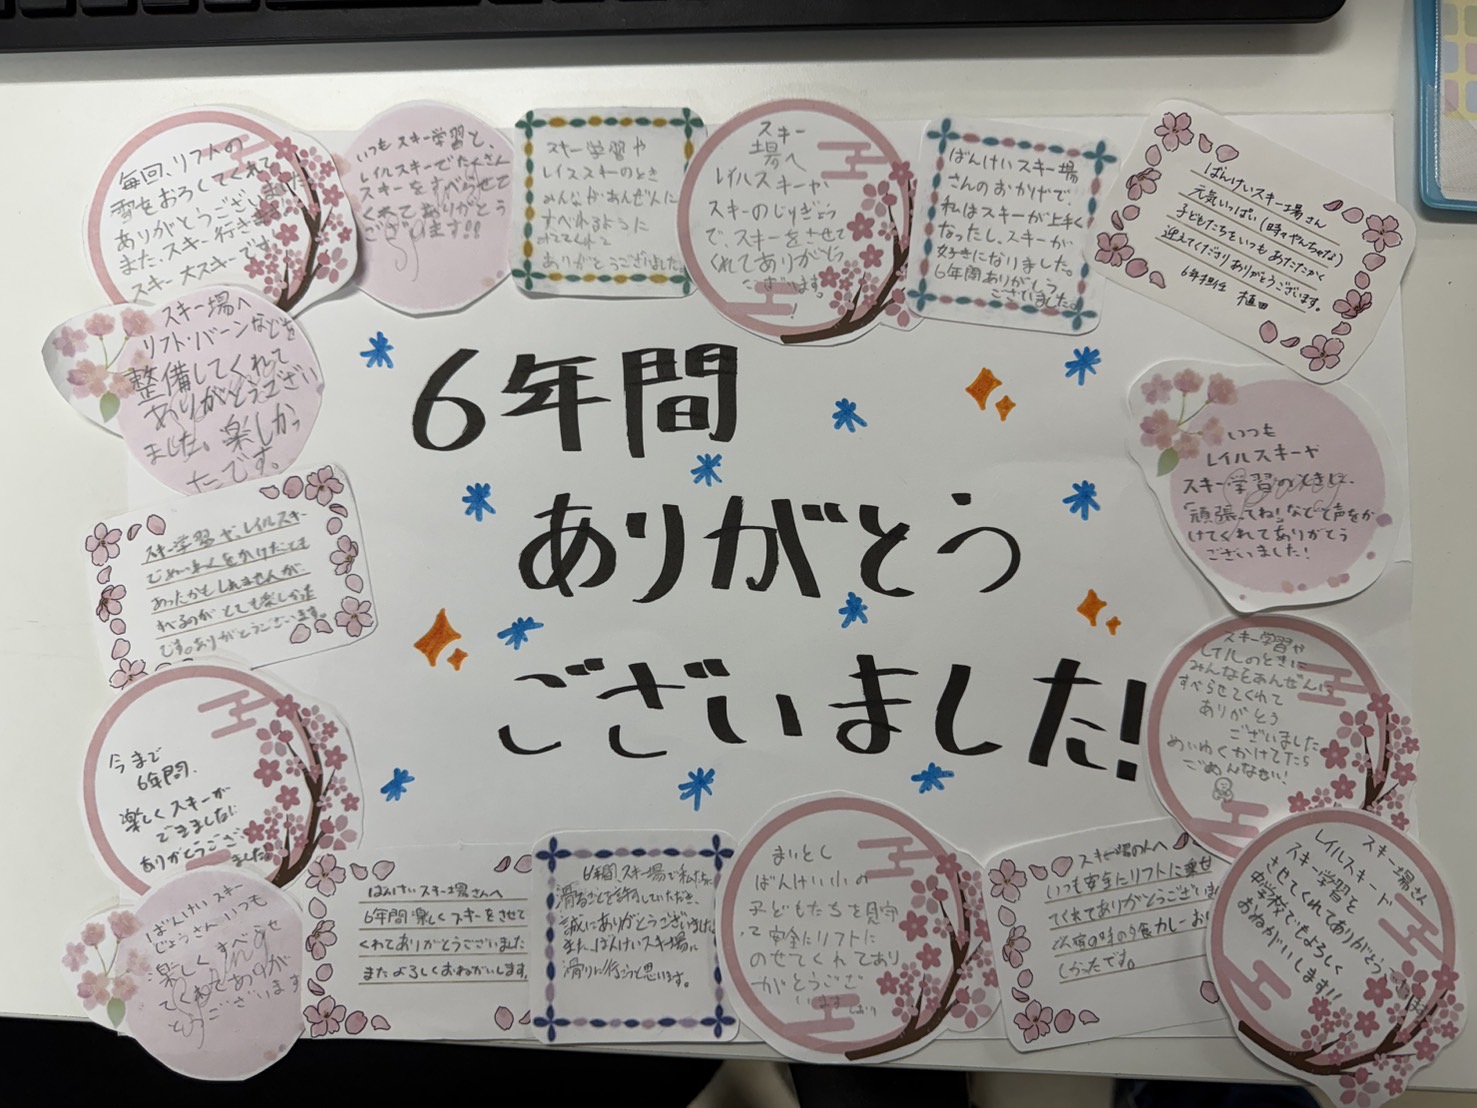 毎回、リフトの
雪をおろしてくれて
ありがとうございました
また、スキー行きます
スキー大スキーです。
いつもスキー学習と、
レイルスキーでたくさん
スキーをすべらせて
くれてありがとう
ございます!!
スキー学習や
レイススキーのとき
みんながあんぜんに
すべれるように
してくれて
ありがとうございました
スキー
場へ
レイルスキーや
スキーのじゅぎょう
で、スキーをさせて
くれてありがとう
ございます。
!
ばんけいスキー場
さんのおかげで、
私はスキーが上手く
なったし、スキーが
好きになりました。
6年間ありがとう
ございました。
ばんけいスキー場さん
元気いっぱい(時々やんちゃな)
子どもたちをいつもあたたかく
迎えてくださりありがとうございます。
6年担任 植田
スキー場へ
リフト・バーンなどを
整備してくれて
ありがとうござい
ました、楽しかっ
たです。
6年間
ありがとう
ございました!
いつも
レイルスキーや
スキー学習のときに、
「頑張ってね!」などと声をか
けてくれてありがとう
ございました!
スキー学習や、レイルスキー
でめいわくをかけたことも
あったかもしれませんが
すべるのがとても楽しかった
です。ありがとうございます。
スキー学習や
レイルのときに
みんなをあんぜんに
すべらせてくれて
ありがとう
ございました
めいわくかけてたら
ごめんなさい!
今まで
6年間、
楽しくスキーが
できました!
ありがとうござい
ました。
ばんけいスキー
じょうさんいつも
楽しくすべらせ
てくれてありが
とうございます
ばんけいスキー場さんへ
6年間楽しくスキーをさせて
くれてありがとうございました
またよろしくおねがいします
6年間、スキー場で私たちに
滑ることを許可していただき、
誠にありがとうございました
また、ばんけいスキー場に
滑りに行こうと思います。
まいとし
ばんけい小の
子どもたちを見守
って安全にリフトに
のせてくれてあり
がとうござ
います
しおり
スキー場の人へ
いつも安全にリフトに乗せ
てくれてありがとうござい
カレーお
しかったです。
スキー場さん
レイルスキード
スキー学習を
させてくれてありがとう
中学校でもよろしく
おねがいします!!